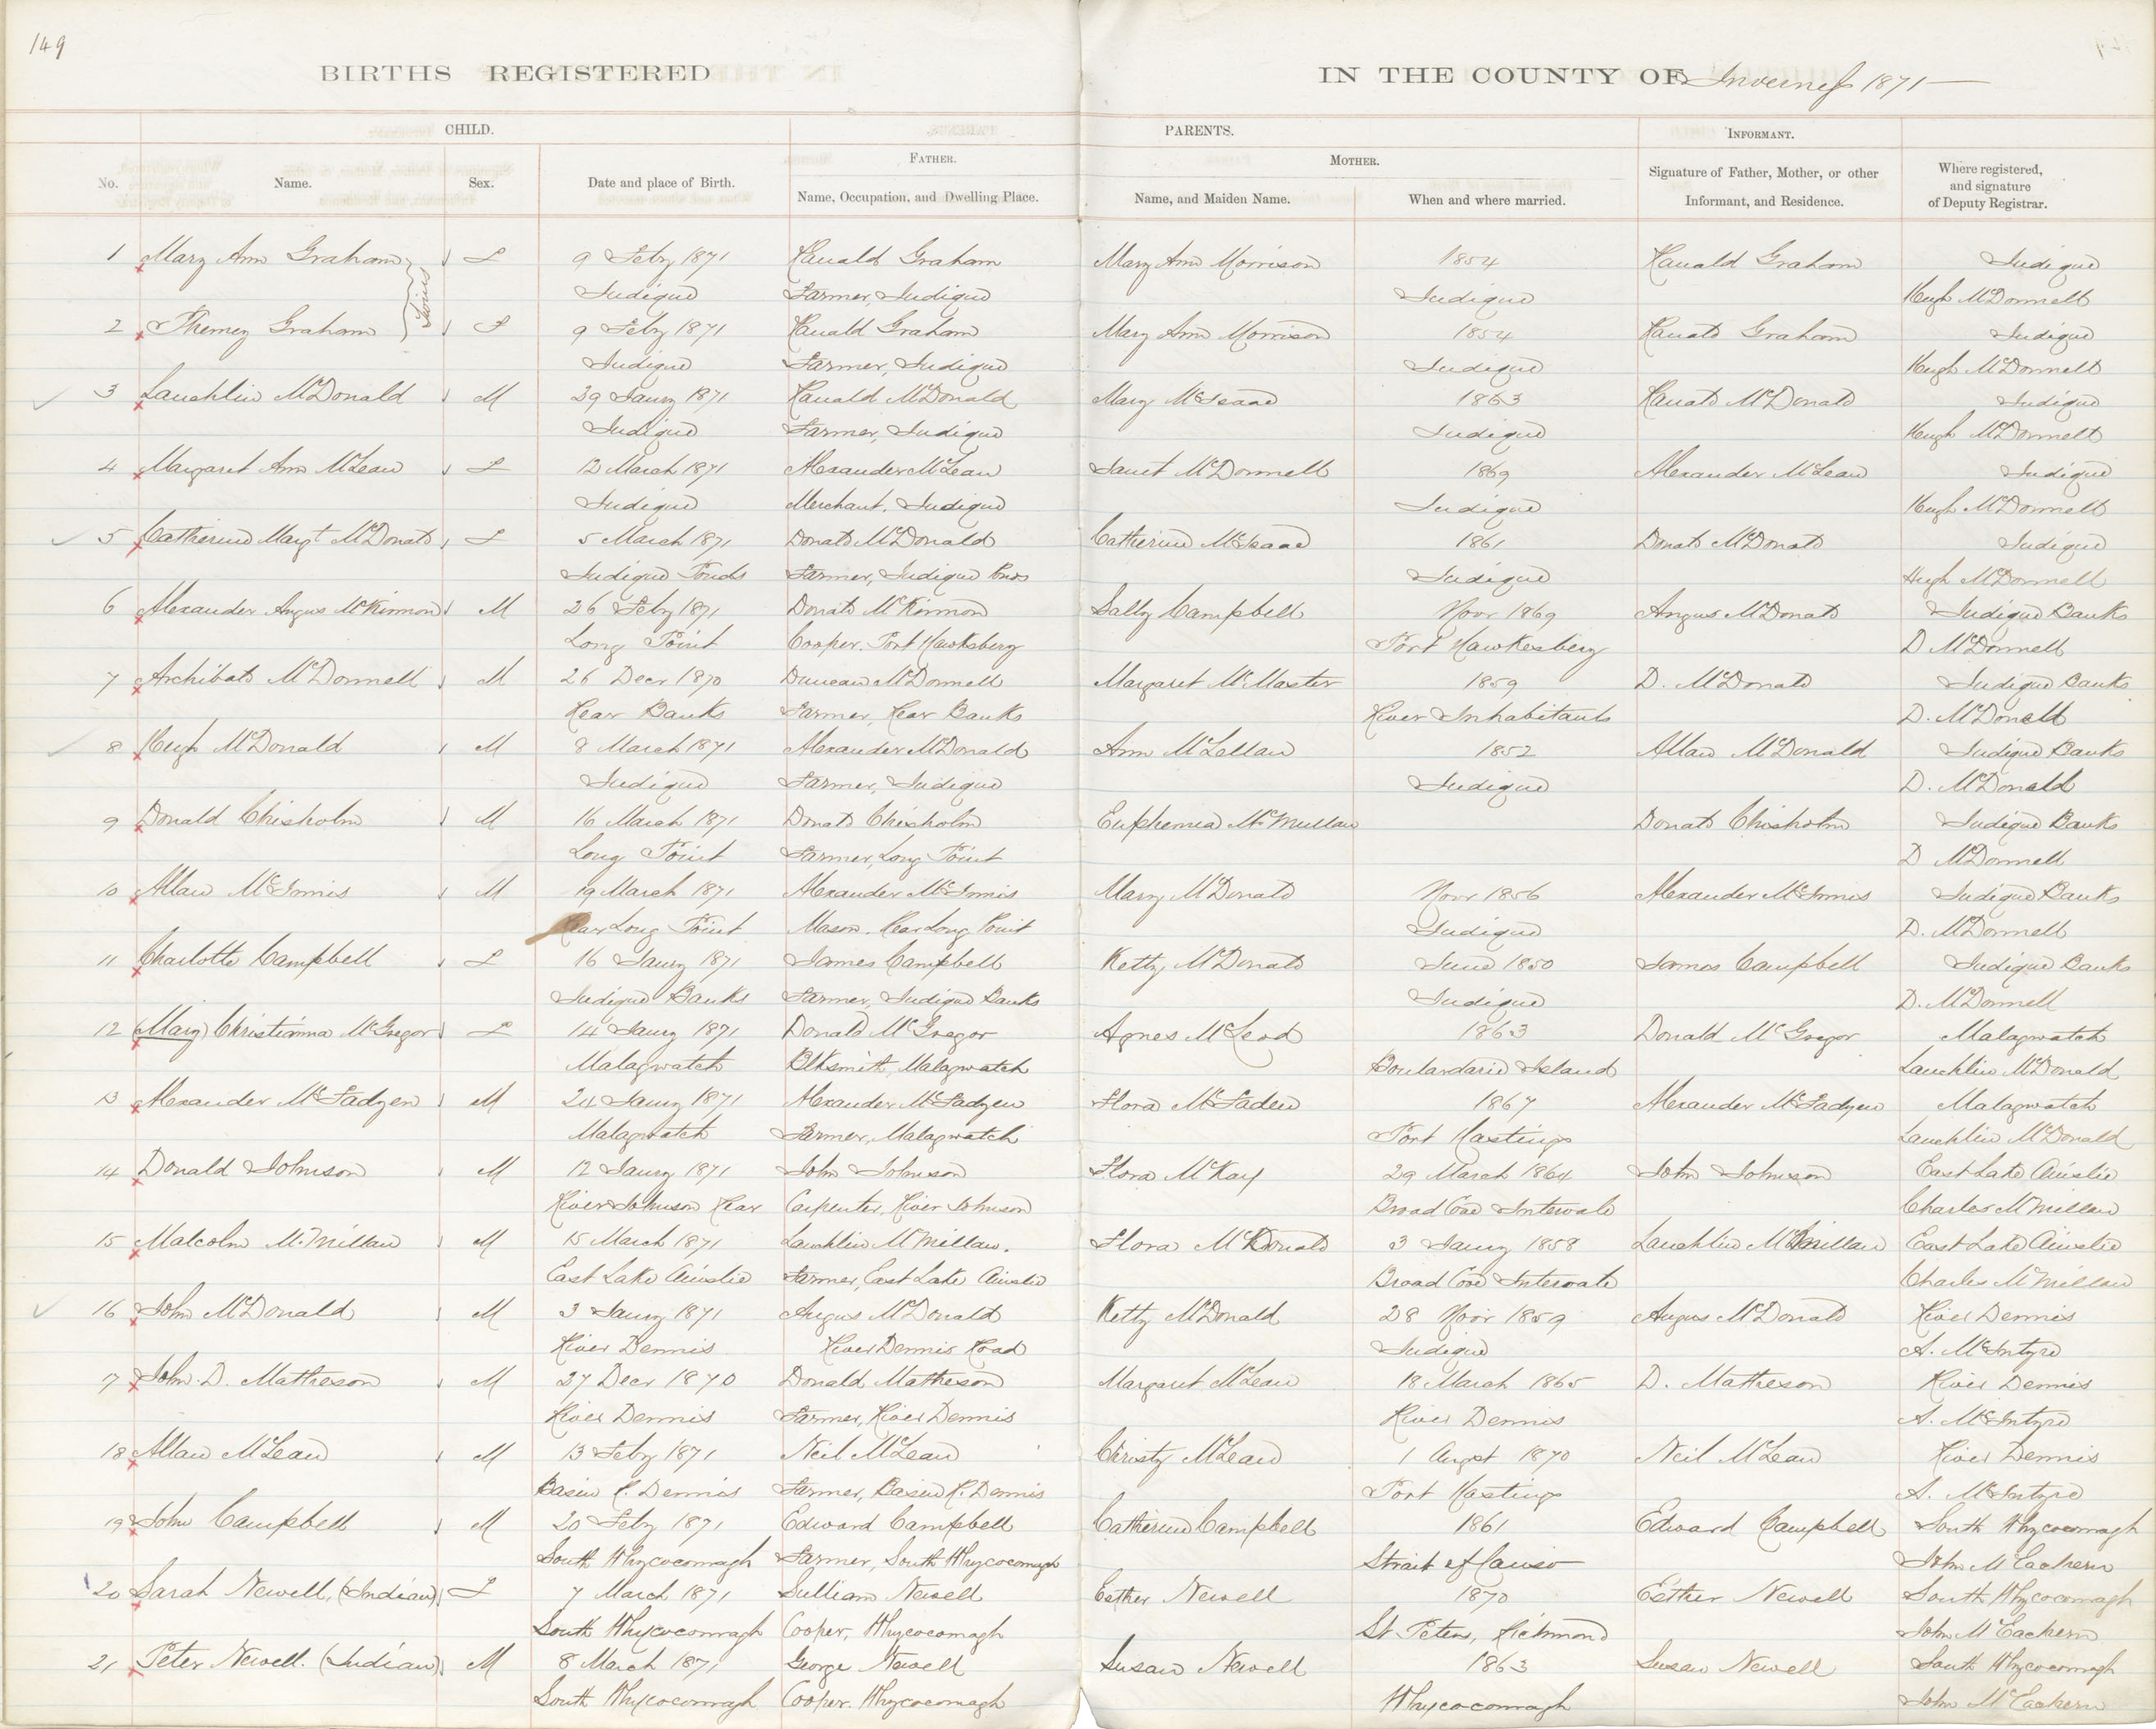 149
BIRTHS REGISTERED IN THE COUNTY OF Inverness 1871
CHILD. PARENTS. INFORMANT.
FATHER. MOTHER.
No. Name. Sex. Date and place of Birth. Name, Occupation, and Dwelling Place. Name, and Maiden Name. When and where married. Signature of Father, Mother, or other Informant, and Residence. Where registered, and signature of Deputy Registrar.
1 Mary Ann Graham F 9 Feby 1871 Ranald Graham Mary Ann Morrison 1854 Ranald Graham Judique
Twins
Judique Farmer, Judique Judique Hugh McDonnell
2 Themey Graham F 9 Feby 1871 Ranald Graham Mary Ann Morrison 1854 Ranald Graham Judique
Judique Farmer, Judique Judique Hugh McDonnell
3 Lauchlin McDonald M 29 Jany 1871 Ranald McDonald Mary McIsaac 1863 Ranald McDonald Judique
Judique Farmer, Judique Judique Hugh McDonnell
4 Margaret Ann McLean F 12 March 1871 Alexander McLean Janet McDonnell 1869 Alexander McLean Judique
Judique Merchant, Judique Judique Hugh McDonnell
5 Catherine Margt McDonald F 5 March 1871 Donald McDonald Catherine McIsaac 1861 Donald McDonald Judique
Judique Ponds Farmer, Judique Pnds Judique Hugh McDonnell
6 Alexander Angus McKinnon M 26 Feby 1871 Donald McKinnon Sally Campbell Novr 1869 Angus McDonald Judique Banks
Long Point Cooper, Port Hawksbery Port Hawkesbery D McDonnell
7 Archibald McDonnell M 26 Decr 1870 Duncan McDonnell Margaret McMaster 1859 D. McDonald Judique Banks
Rear Banks Farmer, Rear Banks River Inhabitants D. McDonell
8 Hugh McDonald M 8 March 1871 Alexander McDonald Ann McLellan 1852 Allan McDonald Judique Banks
Judique Farmer, Judique Judique D. McDonald
9 Donald Chisholm M 16 March 1871 Donald Chisholm Euphemia McMullan Donald Chisholm Judique Banks
Long Point Farmer, Long Point D McDonnell
10 Allan McInnis M 19 March 1871 Alexander McInnis Mary McDonald Novr 1856 Alexander McInnis Judique Banks
Rear Long Point Mason, Rear Long Point Judique D. McDonnell
11 Charlotte Campbell F 16 Jany 1871 James Campbell Ketty McDonald June 1850 James Campbell Judique Banks
Judique Banks Farmer, Judique Banks Judique D. McDonnell
12 (Mary) Christianna McGregor F 14 Jany 1871 Donald McGregor Agnes McLeod 1863 Donald McGregor Malagwatch
Malagwatch Blksmith, Malagwatch Boulardarie Island Lauchlin McDonald
13 Alexander McFadyen M 24 Jany 1871 Alexander McFadyen Flora McFaden 1867 Alexander McFadyen Malagwatch
Malagwatch Farmer, Malagwatch Port Hastings Lauchlin McDonald
14 Donald Johnson M 12 Jany 1871 John Johnson Flora McKay 29 March 1864 John Johnson East Lake Ainslie
River Johnson Rear Carpenter, River Johnson Broad Cove Intervale Charles McMillan
15 Malcolm McMillan M 15 March 1871 Lauchlin McMillan. Flora McDonald 3 Jany 1858 Lauchlin McMillan East Lake Ainslie
East Lake Ainslie Farmer, East Lake Ainslie Broad Cove Intervale Charles McMillan
16 John McDonald M 3 Jany 1871 Angus McDonald Ketty McDonald 28 Novr 1859 Angus McDonald River Dennis
River Dennis River Dennis Road Judique A. McIntyre
17 John D. Matheson M 27 Decr 1870 Donald Matheson Margaret McLean 18 March 1865 D. Matheson River Dennis
River Dennis Farmer, River Dennis River Dennis A. McIntyre
18 Allan McLean M 13 Feby 1871 Neil McLean Christy McLean 1 Augst 1870 Neil McLean River Dennis
Basin R. Dennis Farmer, Basin R. Dennis Port Hastings A. McIntyre
19 John Campbell M 20 Feby 1871 Edward Campbell Catherine Campbell 1861 Edward Campbell South Whycocomagh
South Whycocomagh Farmer, South Whycocomagh Strait of Canso John McEachern
20 Sarah Newell, (Indian) F 7 March 1871 William Newell Esther Newell 1870 Esther Newell South Whycocomagh
South Whycocomagh Cooper, Whycocomagh St. Peters, Richmond John McEachern
21 Peter Newell. (Indian) M 8 March 1871 George Newell Susan Newell 1863 Susan Newell South Whycocomagh
South Whycocomagh Cooper. Whycocomagh Whycocomagh John McEachern